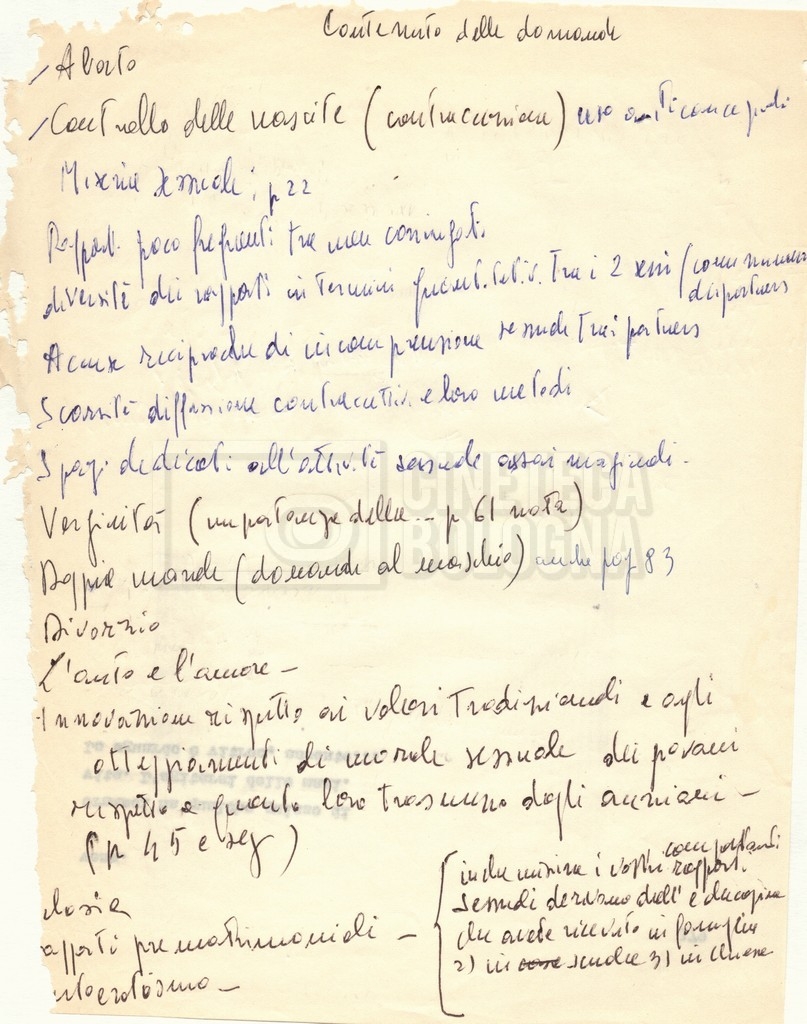 Contenuto delle domande
/ Aborto
/ Controllo delle nascite (contraccezione) uso anticoncezionali
Miseria sessuale; p 22
Rapporti poco frequenti tra non coniugati
diversità dei rapporti in termini quantitativi tra i 2 sessi (come numero
dei partners
Accuse reciproche di incomprensione sessuale tra i partners
Scarsità diffusione contraccettivi e loro metodi
Spazi dedicati all'attività sessuale assai marginali -
CINETECA
BOLOGNA
Verginità (importanza della -- p 61 nota)
Doppia morale (domande al maschio) anche pag 83
Divorzio
L'auto e l'amore -
Innovazione rispetto ai valori tradizionali e agli
atteggiamenti di morale sessuale dei giovani
rispetto a quanto loro trasmesso dagli anziani -
(p 45 e seg)
elosia
apporti prematrimoniali -
utoerotismo -
in che misura i vostri comportamenti
rapporti
sessuali derivano dall'educazione
che avete ricevuto in famiglia
2) in scuola 3) in chiesa